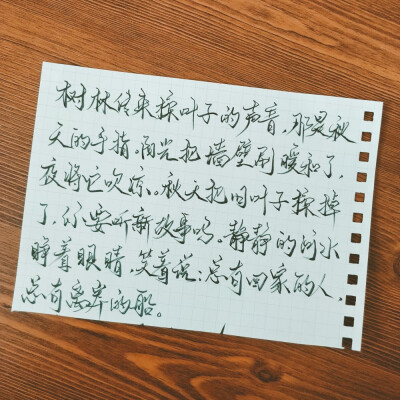 树林传来揉叶子的声音，那是秋
天的手指。阳光把墙壁刷暖和了，
夜将它吹凉。秋天把旧叶子揉掉
了，你要听新故事吗。静静的河水
睁着眼睛，笑着说：总有回家的人，
总有离岸的船。